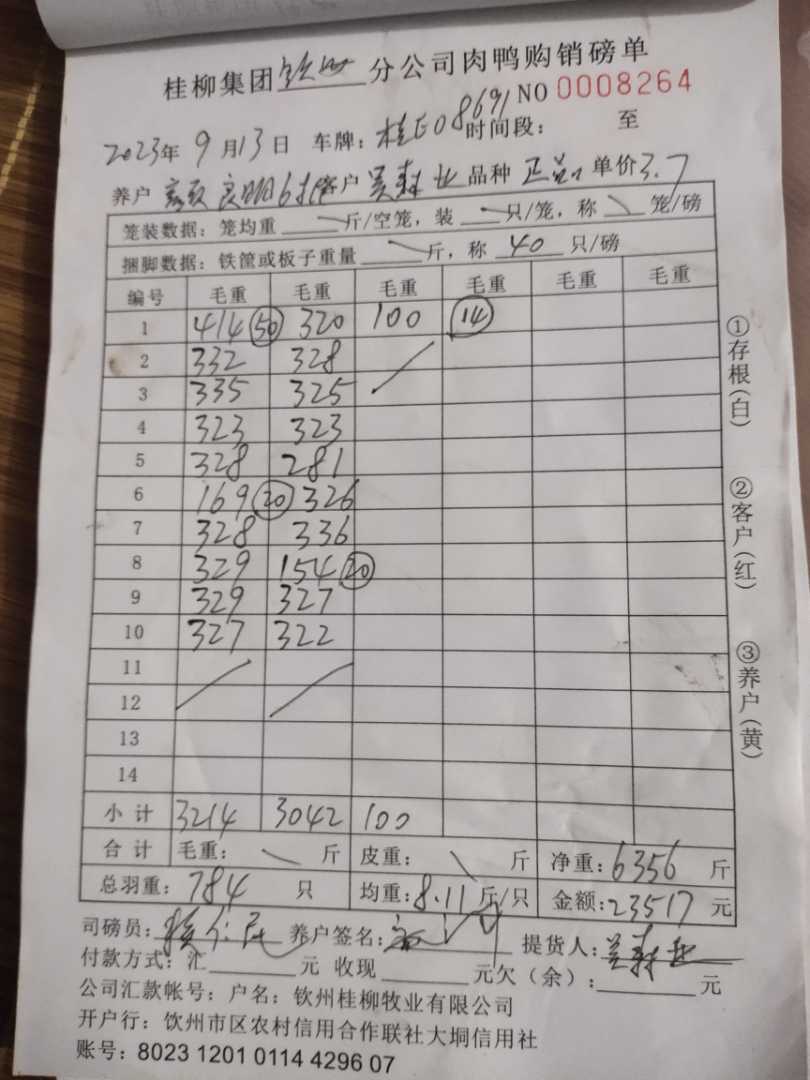 桂柳集团钦州分公司肉鸭购销磅单
NO 0008264
2023年 9月13日 车牌：桂E08691 时间段： 至
养户 良明6批 客户 吴森业 品种 单价3.7
笼装数据：笼均重 斤/空笼，装 只/笼，称 笼/磅
捆脚数据：铁筐或板子重量 斤，称 40 只/磅
编号 毛重 毛重 毛重 毛重 毛重 毛重
1 414 (50) 320 100 (14)
2 332 328
3 335 325
4 323 323
5 328 281
6 169 (20) 326
7 328 336
8 329 154 (20)
9 329 327
10 327 322
11
12
13
14
小计 3214 3042 100
合计 毛重： 斤 皮重： 斤 净重：6356 斤
总羽重：784 只 均重：8.11 斤/只 金额：23517 元
司磅员： 养户签名： 提货人：吴森业
付款方式：汇 元 收现 元欠（余）： 元
公司汇款帐号：户名：钦州桂柳牧业有限公司
开户行：钦州市区农村信用合作联社大垌信用社
账号：8023 1201 0114 4296 07
①存根(白)
②客户(红)
③养户(黄)